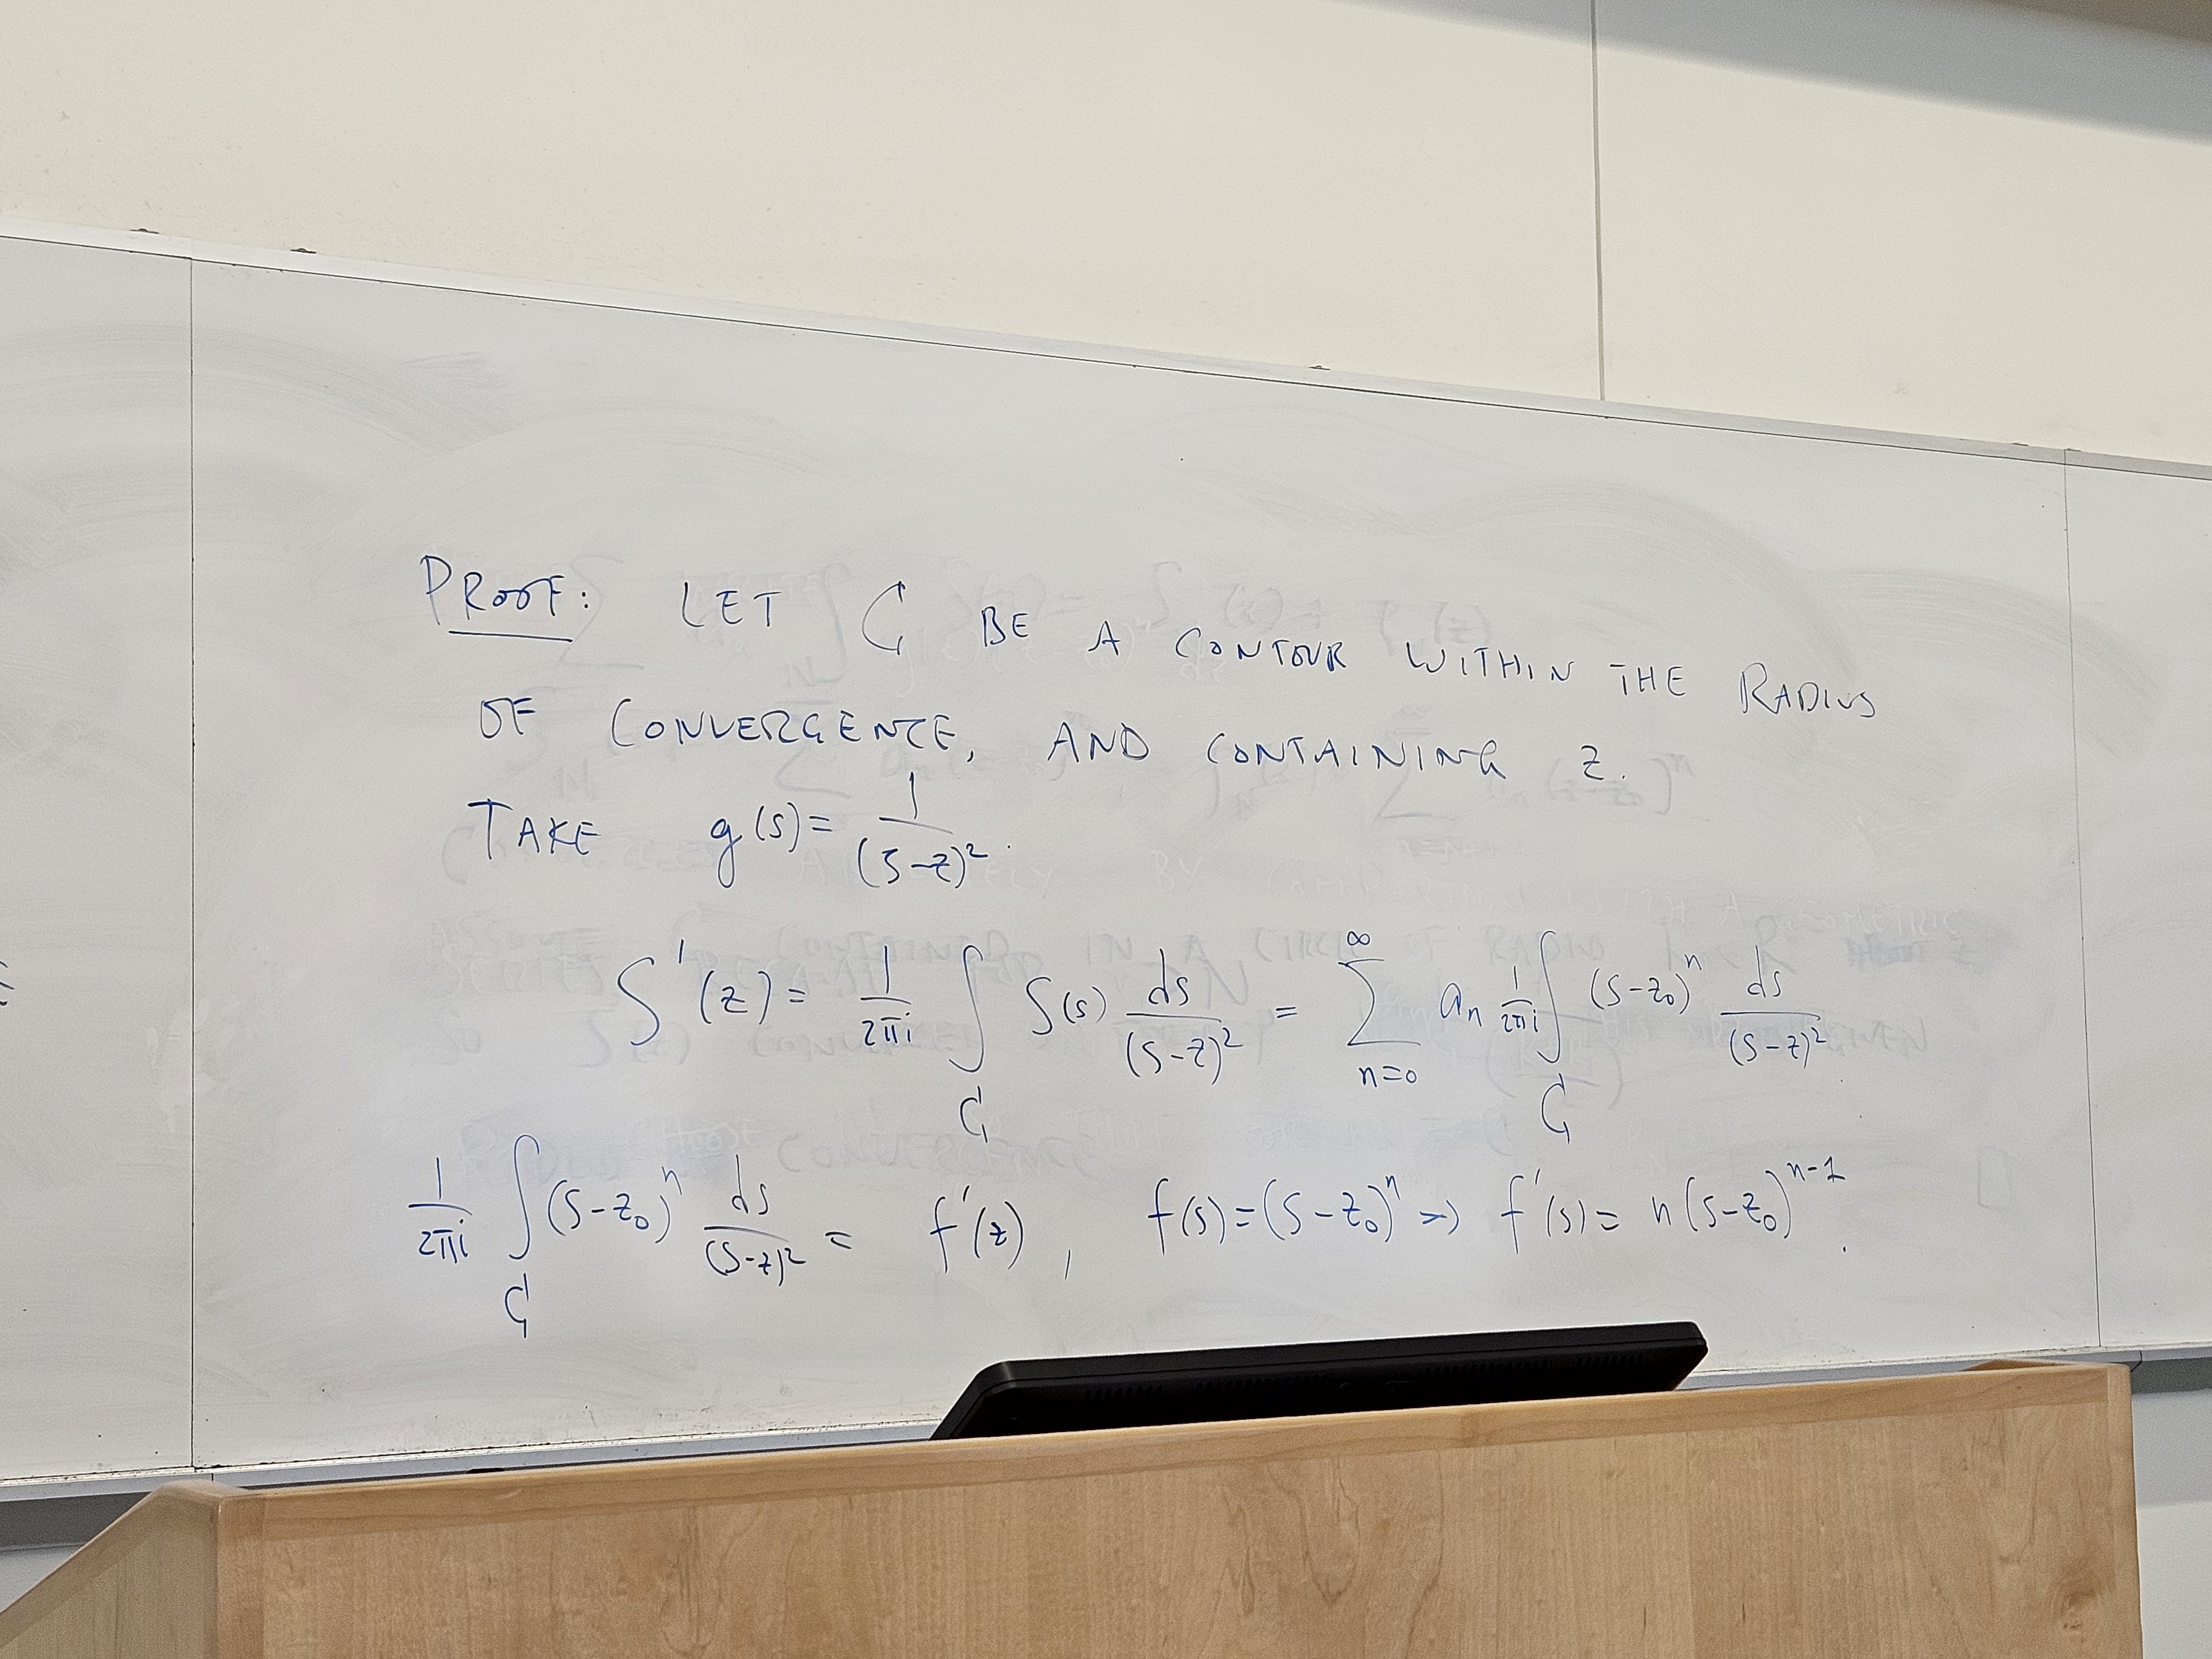 PROOF: LET C BE A CONTOUR WITHIN THE RADIUS
OF CONVERGENCE, AND CONTAINING z.
TAKE g(s) = 1/(s-z)².
S'(z) = 1/2πi ∫_C S(s) ds/(s-z)² = ∑_{n=0}^{∞} a_n 1/2πi ∫_C (s-z₀)ⁿ ds/(s-z)²
1/2πi ∫_C (s-z₀)ⁿ ds/(s-z)² = f'(z), f(s) = (s-z₀)ⁿ => f'(s) = n(s-z₀)ⁿ⁻¹.